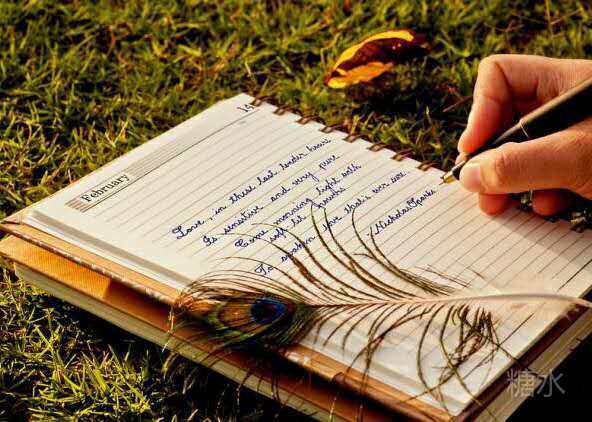 14
February
Love, in these last tender hours
Is sensitive and very pure
Come morning light with
soft lit powers
To awaken love that's ever sure
/Nicholas Sparks
糖水